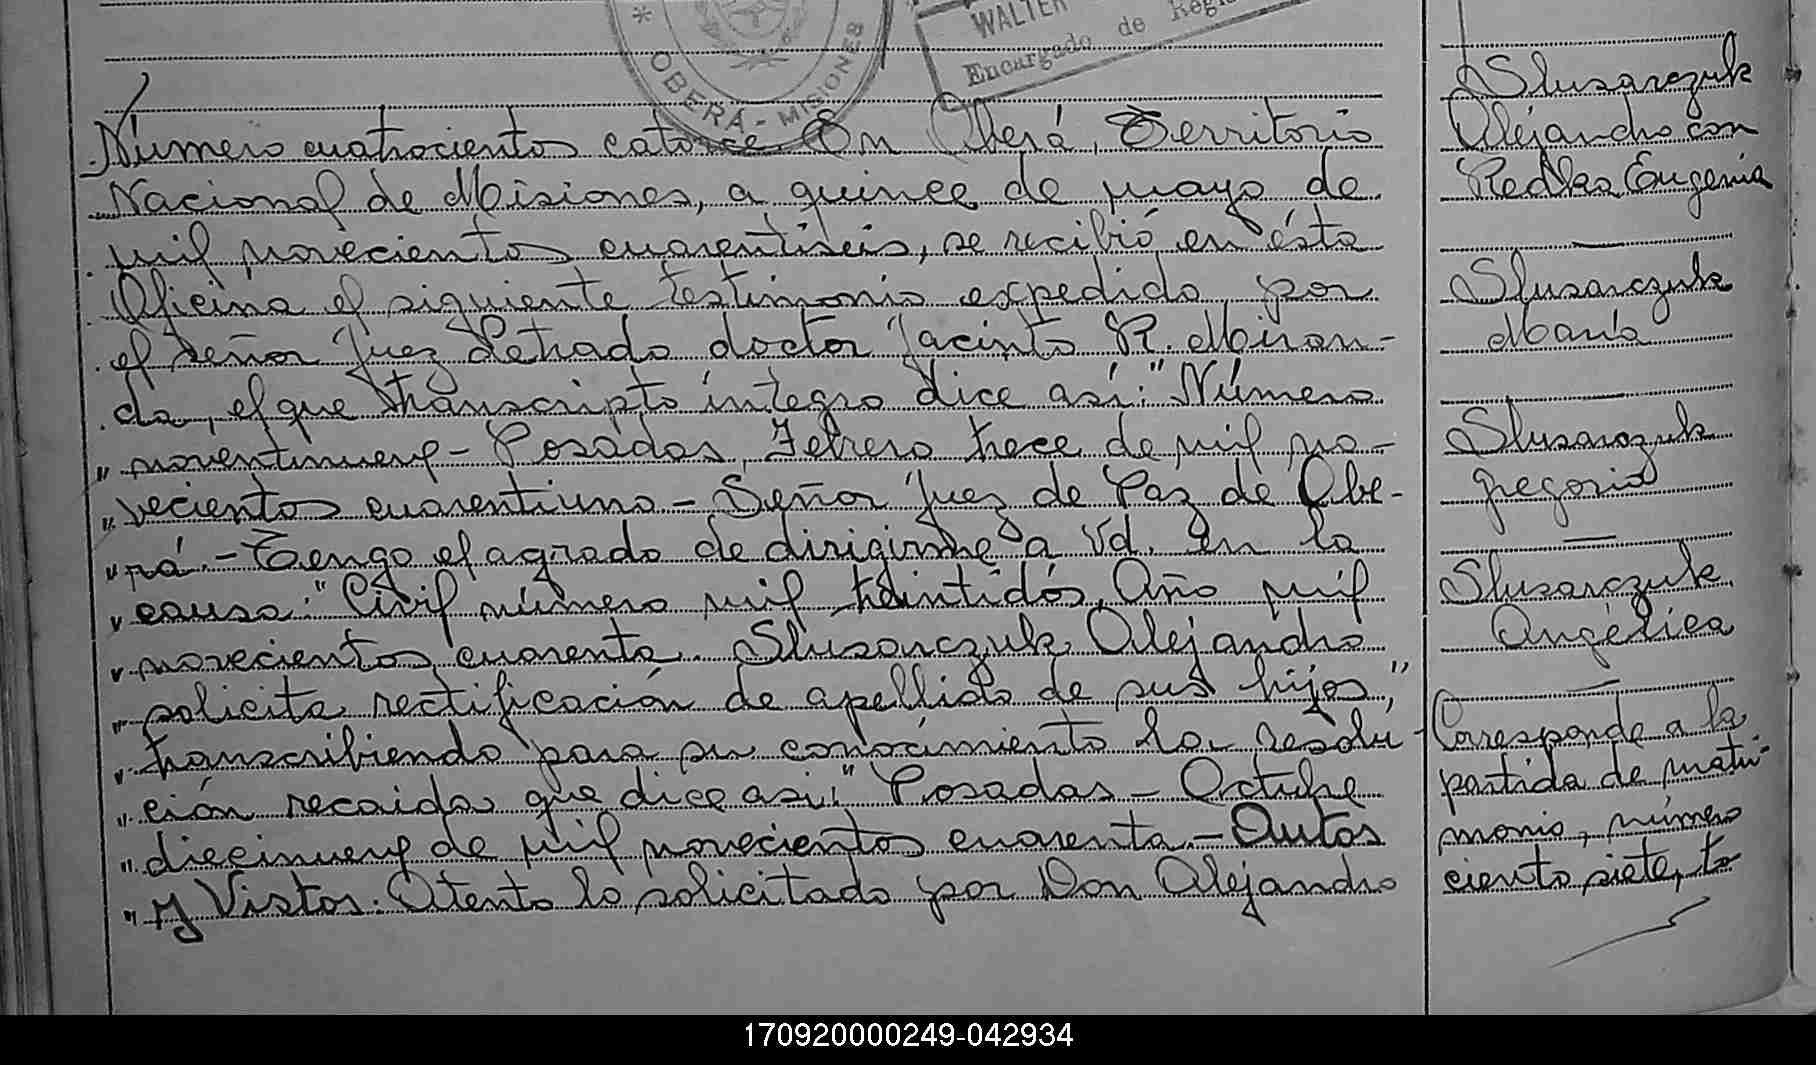 * OBERÁ - MISIONES
WALTER
Encargado de Regis
Número cuatrocientos catorce. En Oberá, Territorio
Nacional de Misiones, a quince de mayo de
mil novecientos cuarentiseis, se recibió en ésta
Oficina el siguiente testimonio expedido por
el señor Juez Letrado doctor Jacinto R. Miran-
da, el que transcripto íntegro dice así: "Número
" noventinueve - Posadas, Febrero trece de mil no-
" vecientos cuarentiuno - Señor Juez de Paz de Obe-
" rá. - Tengo el agrado de dirigirme a Vd. en la
" causa: "Civil número mil treintidós, Año mil
" novecientos cuarenta. Slusarczuk Alejandro
" solicita rectificación de apellido de sus hijos,"
" transcribiendo para su conocimiento la resolu-
" ción recaida que dice asi: "Posadas - Octubre
" diecinueve de mil novecientos cuarenta. - Autos
" y Vistos. Atento lo solicitado por Don Alejandro
Slusarczuk
Alejandro con
Eugenia
Slusarczuk
María
Slusarczuk
Gregorio
Slusarczuk
Angélica
Corresponde a la
partida de matri-
monio, número
ciento siete, to
170920000249-042934